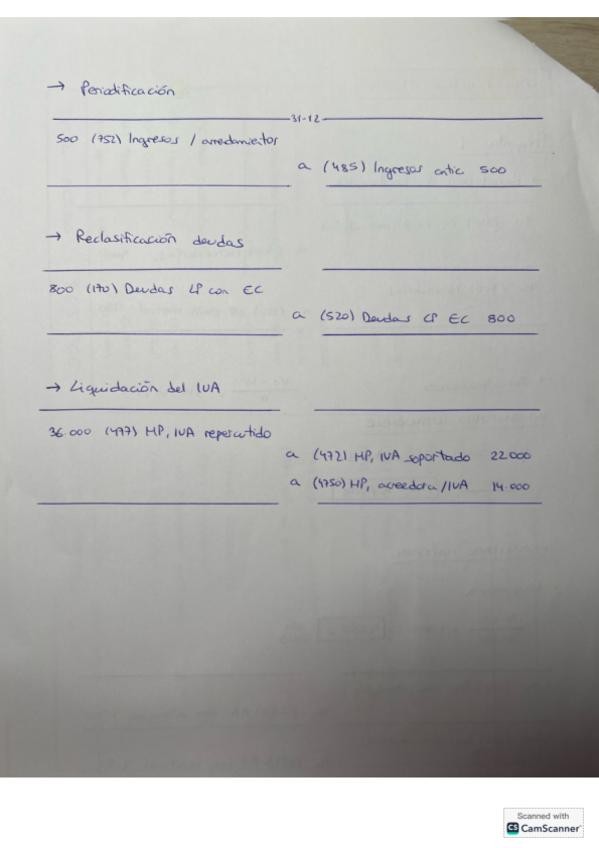 → Periodificación
31-12
500 (752) Ingresos / arrendamientos
a (485) Ingresos antic 500
→ Reclasificación deudas
800 (170) Deudas LP con EC
a (520) Deudas CP EC 800
→ Liquidación del IVA
36.000 (477) HP, IVA repercutido
a (472) HP, IVA soportado 22.000
a (4750) HP, acreedora / IVA 14.000
Scanned with
CS CamScanner